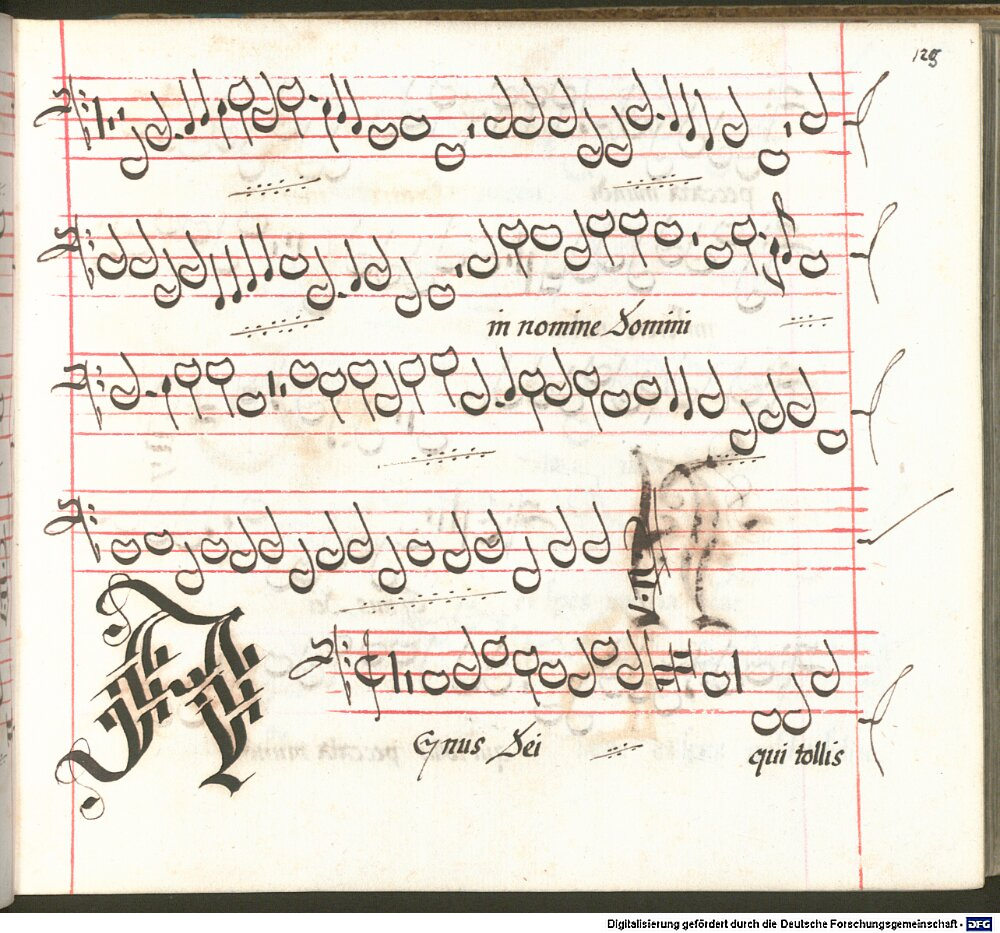 129
in nomine Domini
A
Gnus Dei
qui tollis
Digitalisierung gefördert durch die Deutsche Forschungsgemeinschaft - DFG